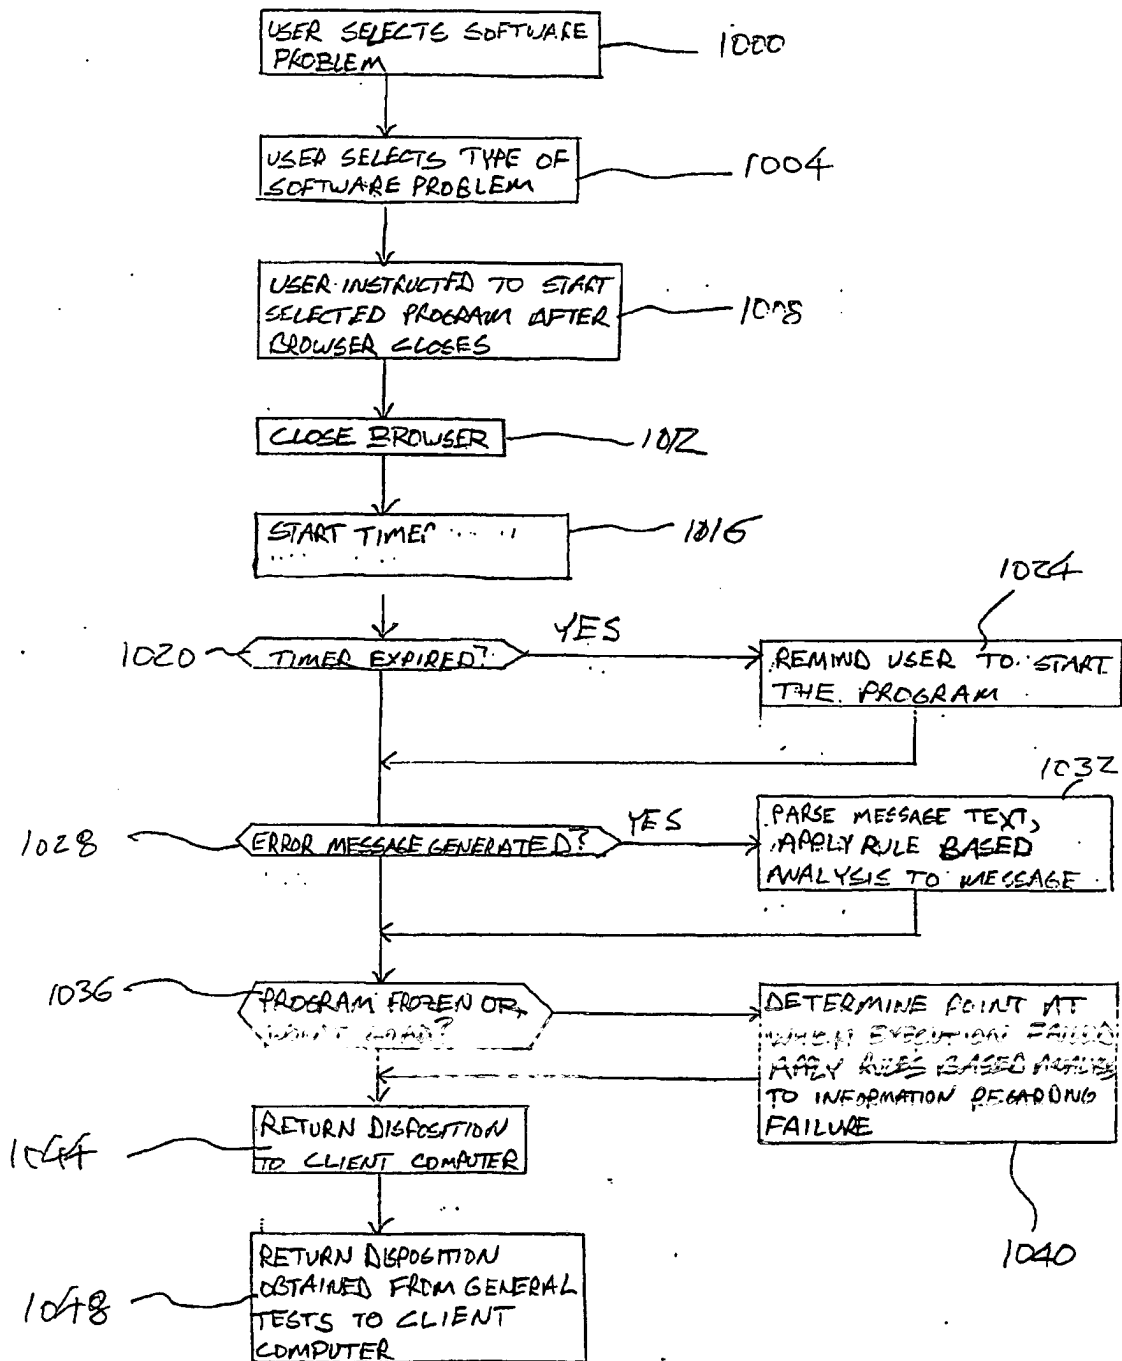 USER SELECTS SOFTWARE
PROBLEM
1000
USER SELECTS TYPE OF
SOFTWARE PROBLEM
1004
USER INSTRUCTED TO START
SELECTED PROGRAM AFTER
BROWSER CLOSES
1008
CLOSE BROWSER
1012
START TIMER
1016
1024
1020
TIMER EXPIRED?
YES
REMIND USER TO START
THE PROGRAM
1032
1028
ERROR MESSAGE GENERATED?
YES
PARSE MESSAGE TEXT,
APPLY RULE BASED
ANALYSIS TO MESSAGE
1036
PROGRAM FROZEN OR
WON'T LOAD?
DETERMINE POINT AT
WHICH EXECUTION FAILED
APPLY RULES BASED ANALYSIS
TO INFORMATION REGARDING
FAILURE
1044
RETURN DISPOSITION
TO CLIENT COMPUTER
1040
1048
RETURN DISPOSITION
OBTAINED FROM GENERAL
TESTS TO CLIENT
COMPUTER